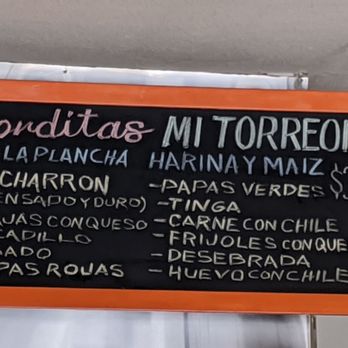 orditas MI TORREO
LA PLANCHA HARINA Y MAIZ $3
CHARRON
ENSADO Y DURO)
JAS CON QUESO
CADILLO
SADO
PAS ROJAS
-PAPAS VERDES
-TINGA
-CARNE CON CHILE
-FRIJOLES CON QUE
-DESEBRADA
-HUEVO CON CHILE